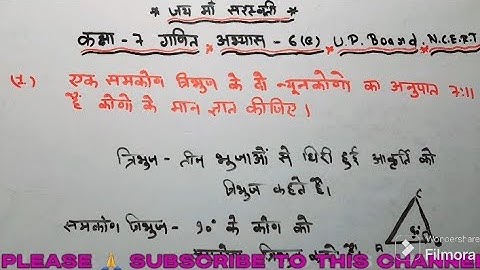 * जय माँ सरस्वती *
कक्षा - 7 गणित, अभ्यास - 6(c), U.P. Board, N.C.E.R.T
(1.) एक समकोण त्रिभुज के दो न्यूनकोणो का अनुपात 7:11
हैं कोणो के मान ज्ञात कीजिए।
त्रिभुज - तीन भुजाओं से घिरी हुई आकृति को
त्रिभुज कहते हैं।
समकोण त्रिभुज - 90° के कोण को
Wondershare
Filmora
PLEASE 🙏 SUBSCRIBE TO THIS CHANNEL